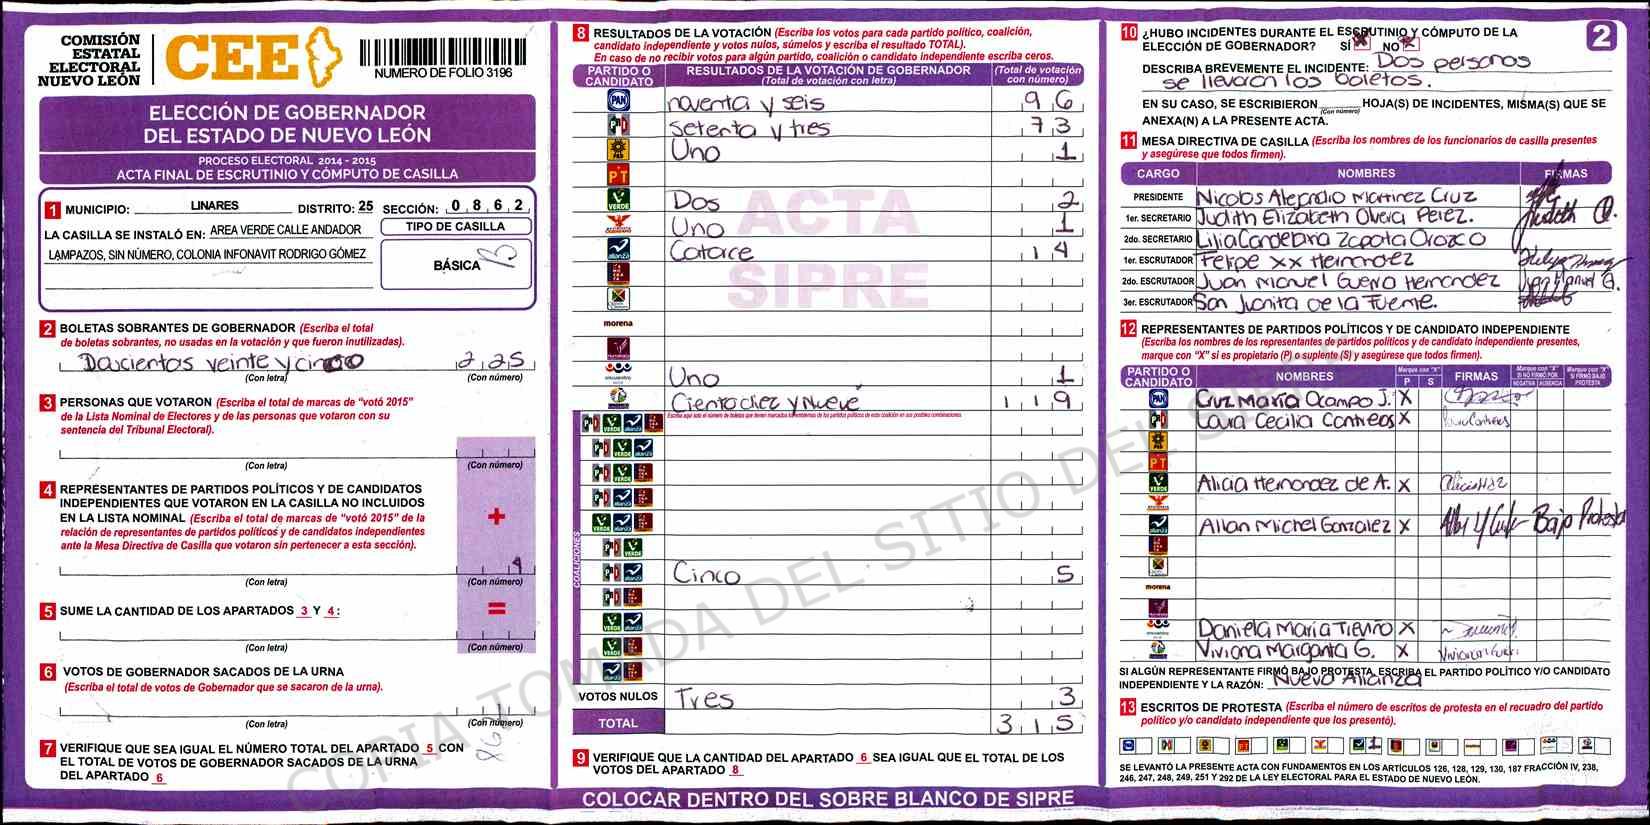 COMISIÓN
ESTATAL
ELECTORAL
NUEVO LEÓN
CEE
NUMERO DE FOLIO 3196
ELECCIÓN DE GOBERNADOR
DEL ESTADO DE NUEVO LEÓN
PROCESO ELECTORAL 2014 - 2015
ACTA FINAL DE ESCRUTINIO Y CÓMPUTO DE CASILLA
1 MUNICIPIO: LINARES DISTRITO: 25 SECCIÓN: 0 8 6 2
LA CASILLA SE INSTALÓ EN: AREA VERDE CALLE ANDADOR
LAMPAZOS, SIN NÚMERO, COLONIA INFONAVIT RODRIGO GÓMEZ
TIPO DE CASILLA
BÁSICA B
2 BOLETAS SOBRANTES DE GOBERNADOR (Escriba el total
de boletas sobrantes, no usadas en la votación y que fueron inutilizadas).
Doscientos veinte y cinco 2 2 5
(Con letra) (Con número)
3 PERSONAS QUE VOTARON (Escriba el total de marcas de “votó 2015”
de la Lista Nominal de Electores y de las personas que votaron con su
sentencia del Tribunal Electoral).
(Con letra) (Con número)
4 REPRESENTANTES DE PARTIDOS POLÍTICOS Y DE CANDIDATOS
INDEPENDIENTES QUE VOTARON EN LA CASILLA NO INCLUIDOS
EN LA LISTA NOMINAL (Escriba el total de marcas de “votó 2015” de la
relación de representantes de partidos políticos y de candidatos independientes
ante la Mesa Directiva de Casilla que votaron sin pertenecer a esta sección).
+
(Con letra) (Con número)
=
5 SUME LA CANTIDAD DE LOS APARTADOS 3 Y 4:
(Con letra) (Con número)
6 VOTOS DE GOBERNADOR SACADOS DE LA URNA
(Escriba el total de votos de Gobernador que se sacaron de la urna).
(Con letra) (Con número)
7 VERIFIQUE QUE SEA IGUAL EL NÚMERO TOTAL DEL APARTADO 5 CON
EL TOTAL DE VOTOS DE GOBERNADOR SACADOS DE LA URNA
DEL APARTADO 6
8 RESULTADOS DE LA VOTACIÓN (Escriba los votos para cada partido político, coalición,
candidato independiente y votos nulos, súmelos y escriba el resultado TOTAL).
En caso de no recibir votos para algún partido, coalición o candidato independiente escriba ceros.
PARTIDO O CANDIDATO RESULTADOS DE LA VOTACIÓN DE GOBERNADOR (Total de votación con letra) (Total de votación con número).
PAN noventa y seis 9 6
PRI Setenta y tres 7 3
PRD Uno 1
PT
VERDE Dos 2
Uno 1
alianza Catorce 1 4
morena
Uno 1
Ciento diez y Nueve 1 1 9
COALICIONES
Cinco 5
VOTOS NULOS Tres 3
TOTAL 3 1 5
ACTA
SIPRE
9 VERIFIQUE QUE LA CANTIDAD DEL APARTADO 6 SEA IGUAL QUE EL TOTAL DE LOS
VOTOS DEL APARTADO 8
COLOCAR DENTRO DEL SOBRE BLANCO DE SIPRE
2
10 ¿HUBO INCIDENTES DURANTE EL ESCRUTINIO Y CÓMPUTO DE LA
ELECCIÓN DE GOBERNADOR? SÍ NO
DESCRIBA BREVEMENTE EL INCIDENTE: Dos personas
se llevaron las boletos.
EN SU CASO, SE ESCRIBIERON (Con número) HOJA(S) DE INCIDENTES, MISMA(S) QUE SE
ANEXA(N) A LA PRESENTE ACTA.
11 MESA DIRECTIVA DE CASILLA (Escriba los nombres de los funcionarios de casilla presentes
y asegúrese que todos firmen).
CARGO NOMBRES FIRMAS
PRESIDENTE Nicolas Alejandro Martinez Cruz
1er. SECRETARIO Judith Elizabeth Olvera Perez. Judith O.
2do. SECRETARIO Lilia Candelaria Zapata Orozco
1er. ESCRUTADOR Felipe xx Hernandez
2do. ESCRUTADOR Juan Manuel Guerra Hernandez Juan Manuel G.
3er. ESCRUTADOR San Juanita de la Fuente.
12 REPRESENTANTES DE PARTIDOS POLÍTICOS Y DE CANDIDATO INDEPENDIENTE
(Escriba los nombres de los representantes de partidos políticos y de candidato independiente presentes,
marque con “X” si es propietario (P) o suplente (S) y asegúrese que todos firmen).
PARTIDO O CANDIDATO NOMBRES Marque con "X" P S FIRMAS Marque con "X" SI NO FIRMÓ POR NEGATIVA AUSENCIA Marque con "X" SI FIRMÓ BAJO PROTESTA
PAN Cruz María Ocampo J. X
PRI Laura Cecilia Contreras X
PRD
PT
VERDE Alicia Hernandez de A. X
alianza Allan Michel Gonzalez X Bajo Protesta
morena
Daniela Maria Treviño X
Viviana Margarita G. X
SI ALGÚN REPRESENTANTE FIRMÓ BAJO PROTESTA, ESCRIBA EL PARTIDO POLÍTICO Y/O CANDIDATO
INDEPENDIENTE Y LA RAZÓN: Nueva Alianza
13 ESCRITOS DE PROTESTA (Escriba el número de escritos de protesta en el recuadro del partido
político y/o candidato independiente que los presentó).
1
SE LEVANTÓ LA PRESENTE ACTA CON FUNDAMENTOS EN LOS ARTÍCULOS 126, 128, 129, 130, 187 FRACCIÓN IV, 238,
246, 247, 248, 249, 251 Y 292 DE LA LEY ELECTORAL PARA EL ESTADO DE NUEVO LEÓN.
COPIA TOMADA DEL SITIO DEL SIPRE